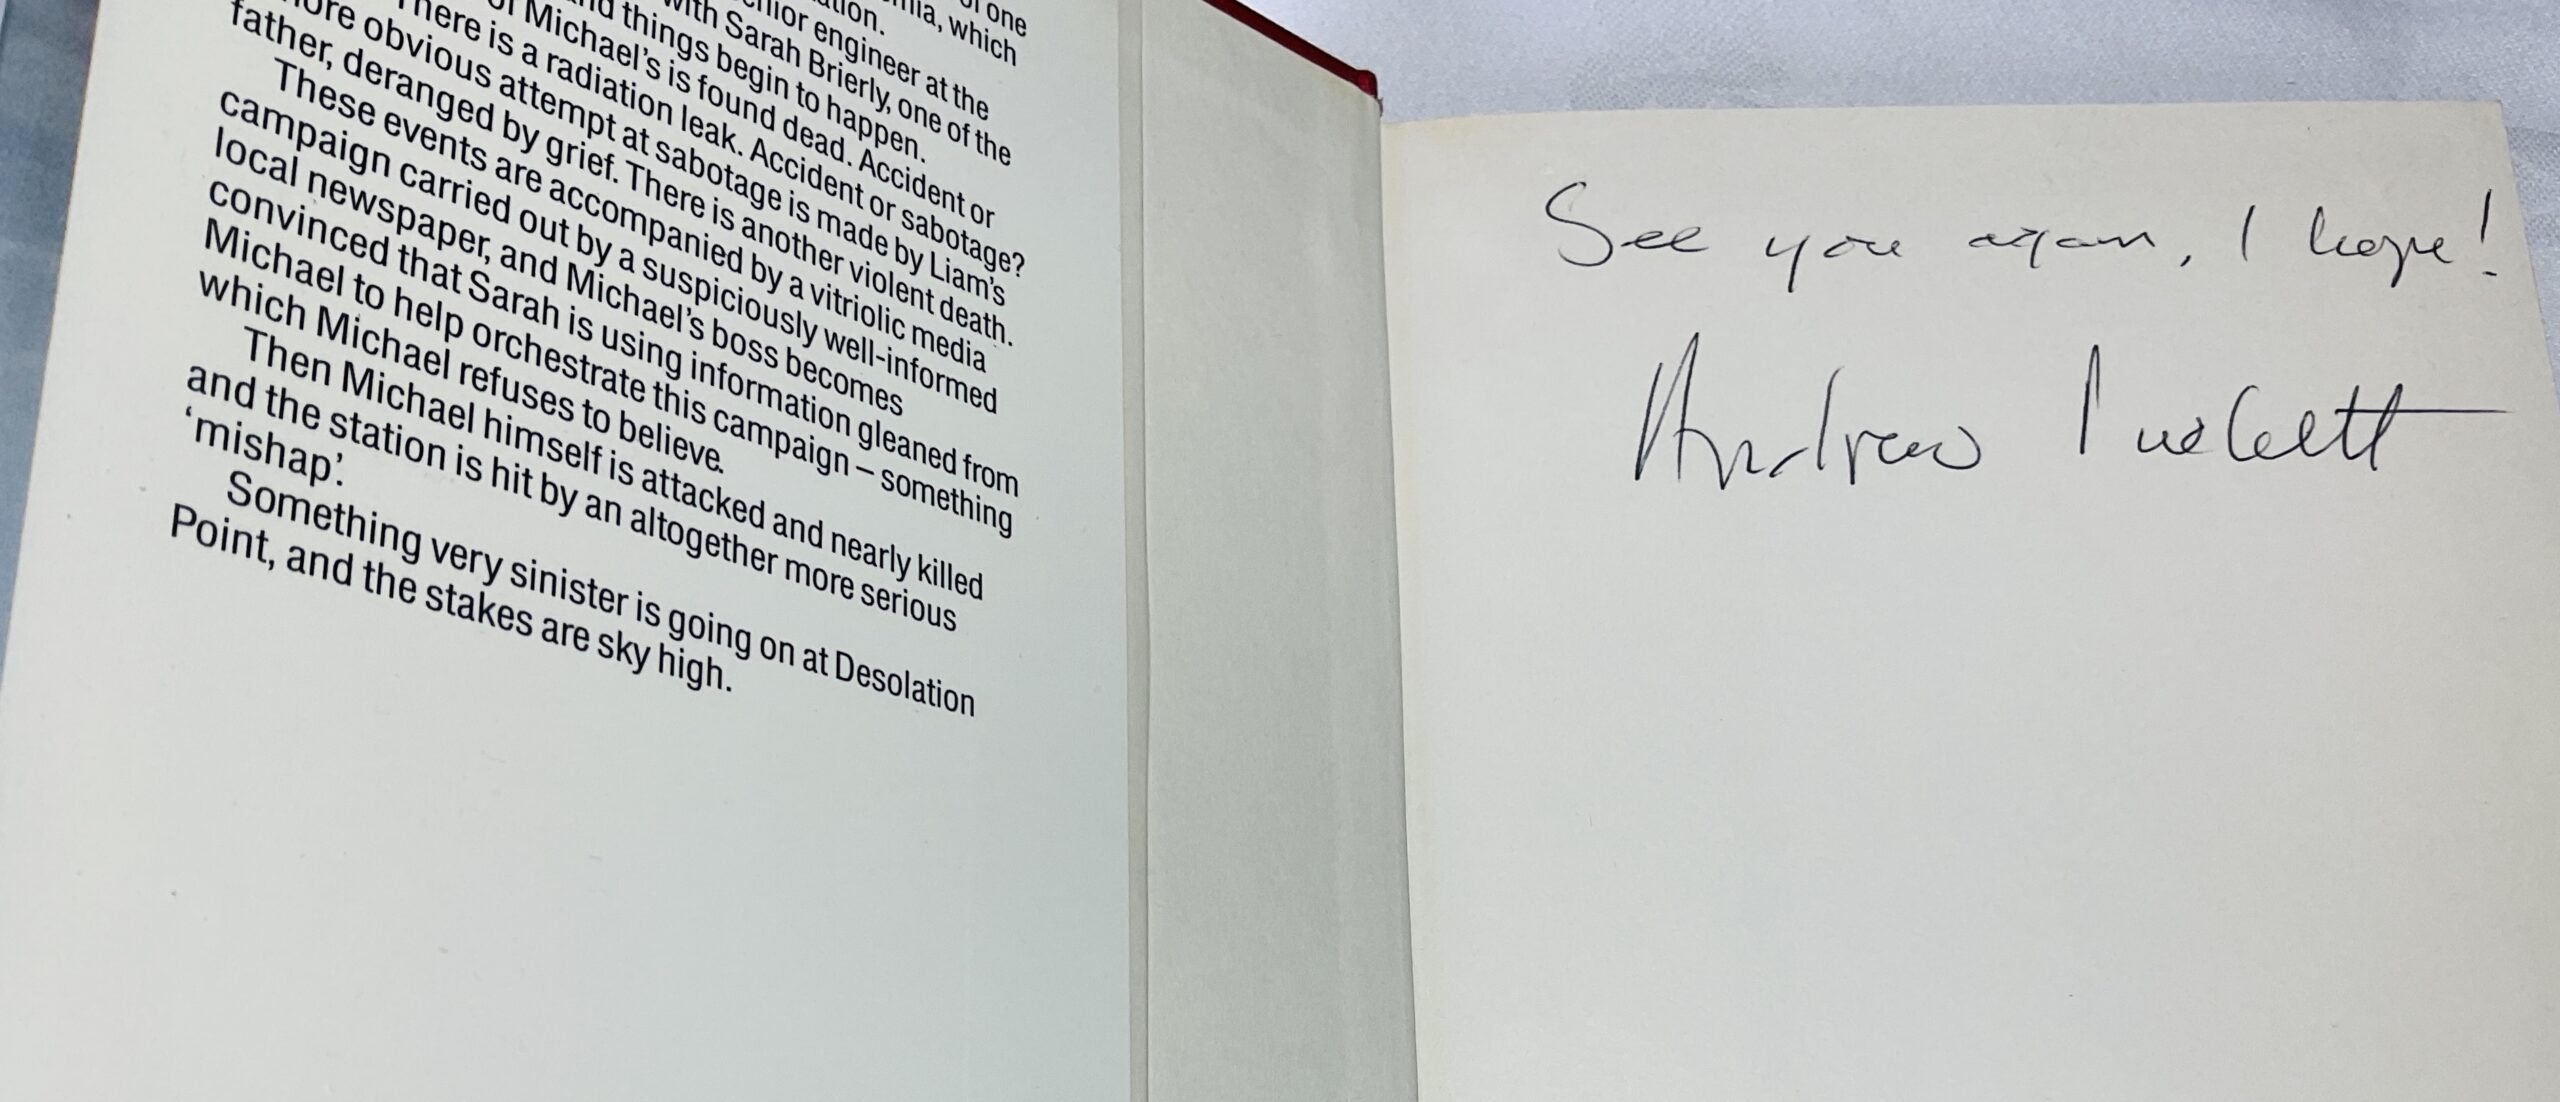 of one
which
engineer at the
Sarah Brierly, one of the
things begin to happen.
of Michael's is found dead. Accident or
There is a radiation leak. Accident or sabotage?
more obvious attempt at sabotage is made by Liam's
father, deranged by grief. There is another violent death.
These events are accompanied by a vitriolic media
campaign carried out by a suspiciously well-informed
local newspaper, and Michael's boss becomes
convinced that Sarah is using information gleaned from
Michael to help orchestrate this campaign – something
which Michael refuses to believe.
Then Michael himself is attacked and nearly killed
and the station is hit by an altogether more serious
‘mishap’.
Something very sinister is going on at Desolation
Point, and the stakes are sky high.
See you again, I hope!
Andrew Puckett